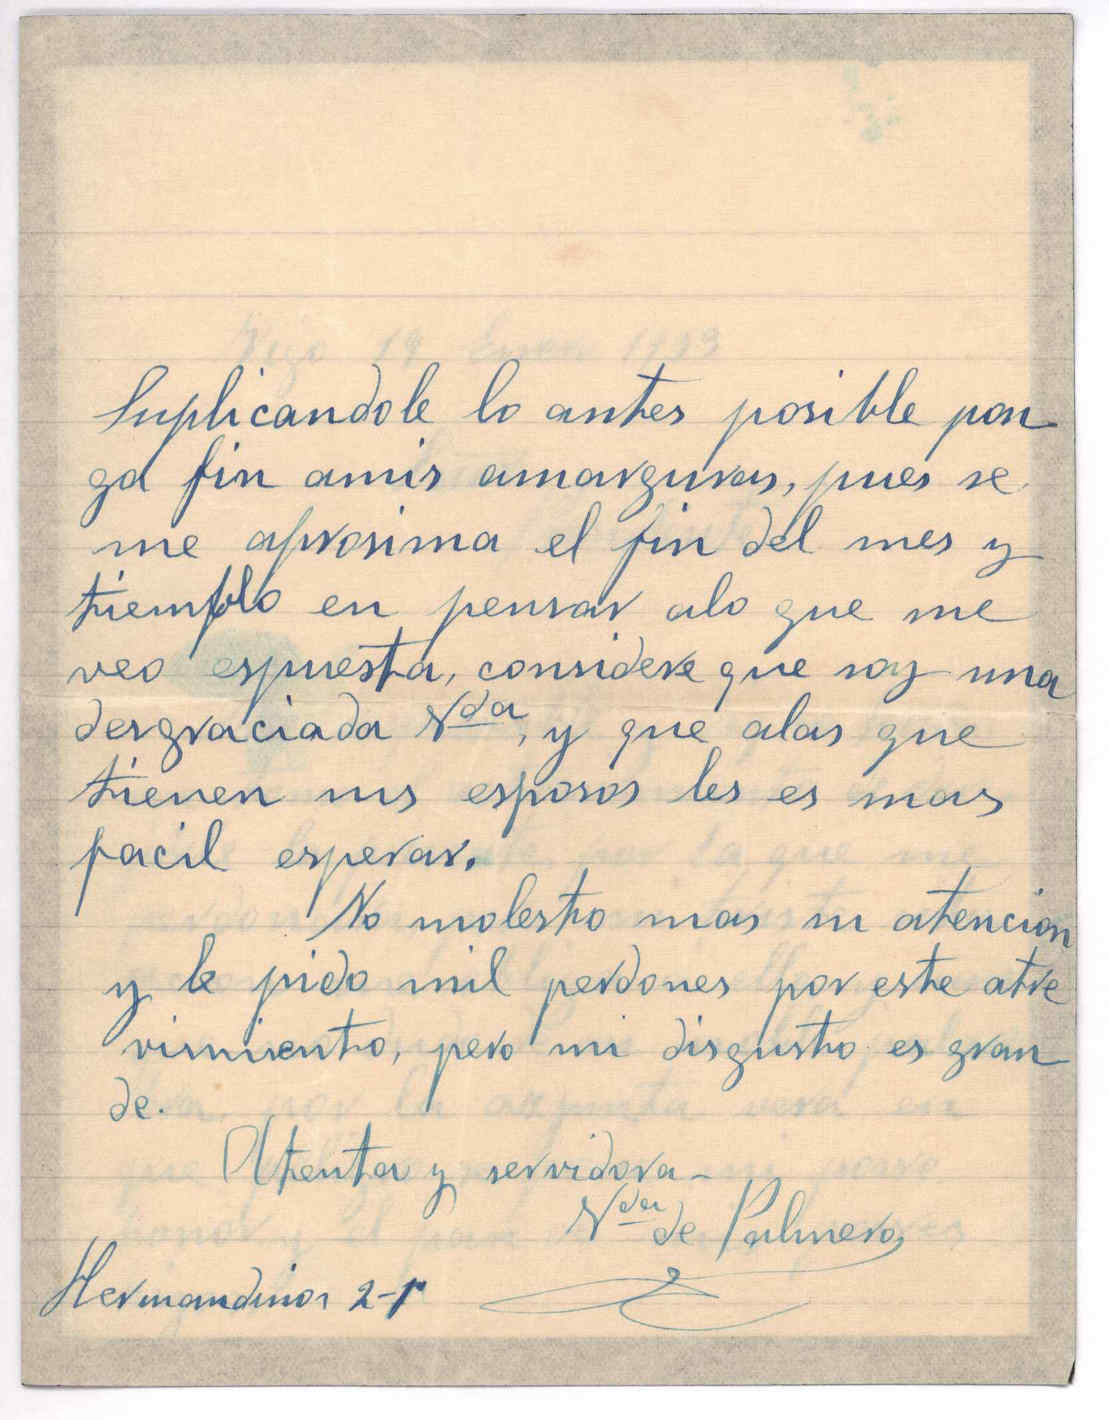 Suplicandole lo antes posible pon
ga fin amis amarguras, pues se
me aprosima el fin del mes y
tiemblo en pensar alo que me
veo espuesta, considere que soy una
desgraciada Vda, y que alas que
tienen sus esposos les es mas
facil esperar.
No molesto mas su atencion
y le pido mil perdones por este atre
vimiento, pero mi disgusto es gran
de.
Atenta y servidora-
Vda de Palmero
Hermandinos 2-1º